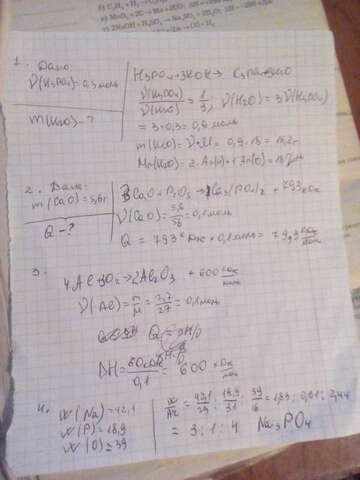 1. Дано:
ν(H₃PO₄)=0,3 моль
m(H₂O)-?
H₃PO₄+3KOH→
ν(H₃PO₄)/ν(H₂O) = 1/3; ν(H₂O)=3ν(H₃PO₄)
=3·0,3=0,9 моль
m(H₂O)=ν·M=0,9·18=16,2г
Mr(H₂O)=2·Ar(H)+1Ar(O)=18
2. Дано:
m(CaO)=5,6г
Q-?
3CaO+P₂O₅→Ca₃(PO₄)₂+793кДж
ν(CaO)=5,6/56=0,1моль
Q=793кДж·0,1моль=79,3
3.
4Al+3O₂→2Al₂O₃+600
ν(Al)=m/M=2,7/27=0,1моль
Q=
ΔH= /0,1=600 кДж/моль
4.
ω(Na)=42,1
ω(P)=18,9
ω(O)=39
ω/Ar=42,1/23:18,9/31:39/16=1,83:0,61:2,44
=3:1:4 Na₃PO₄